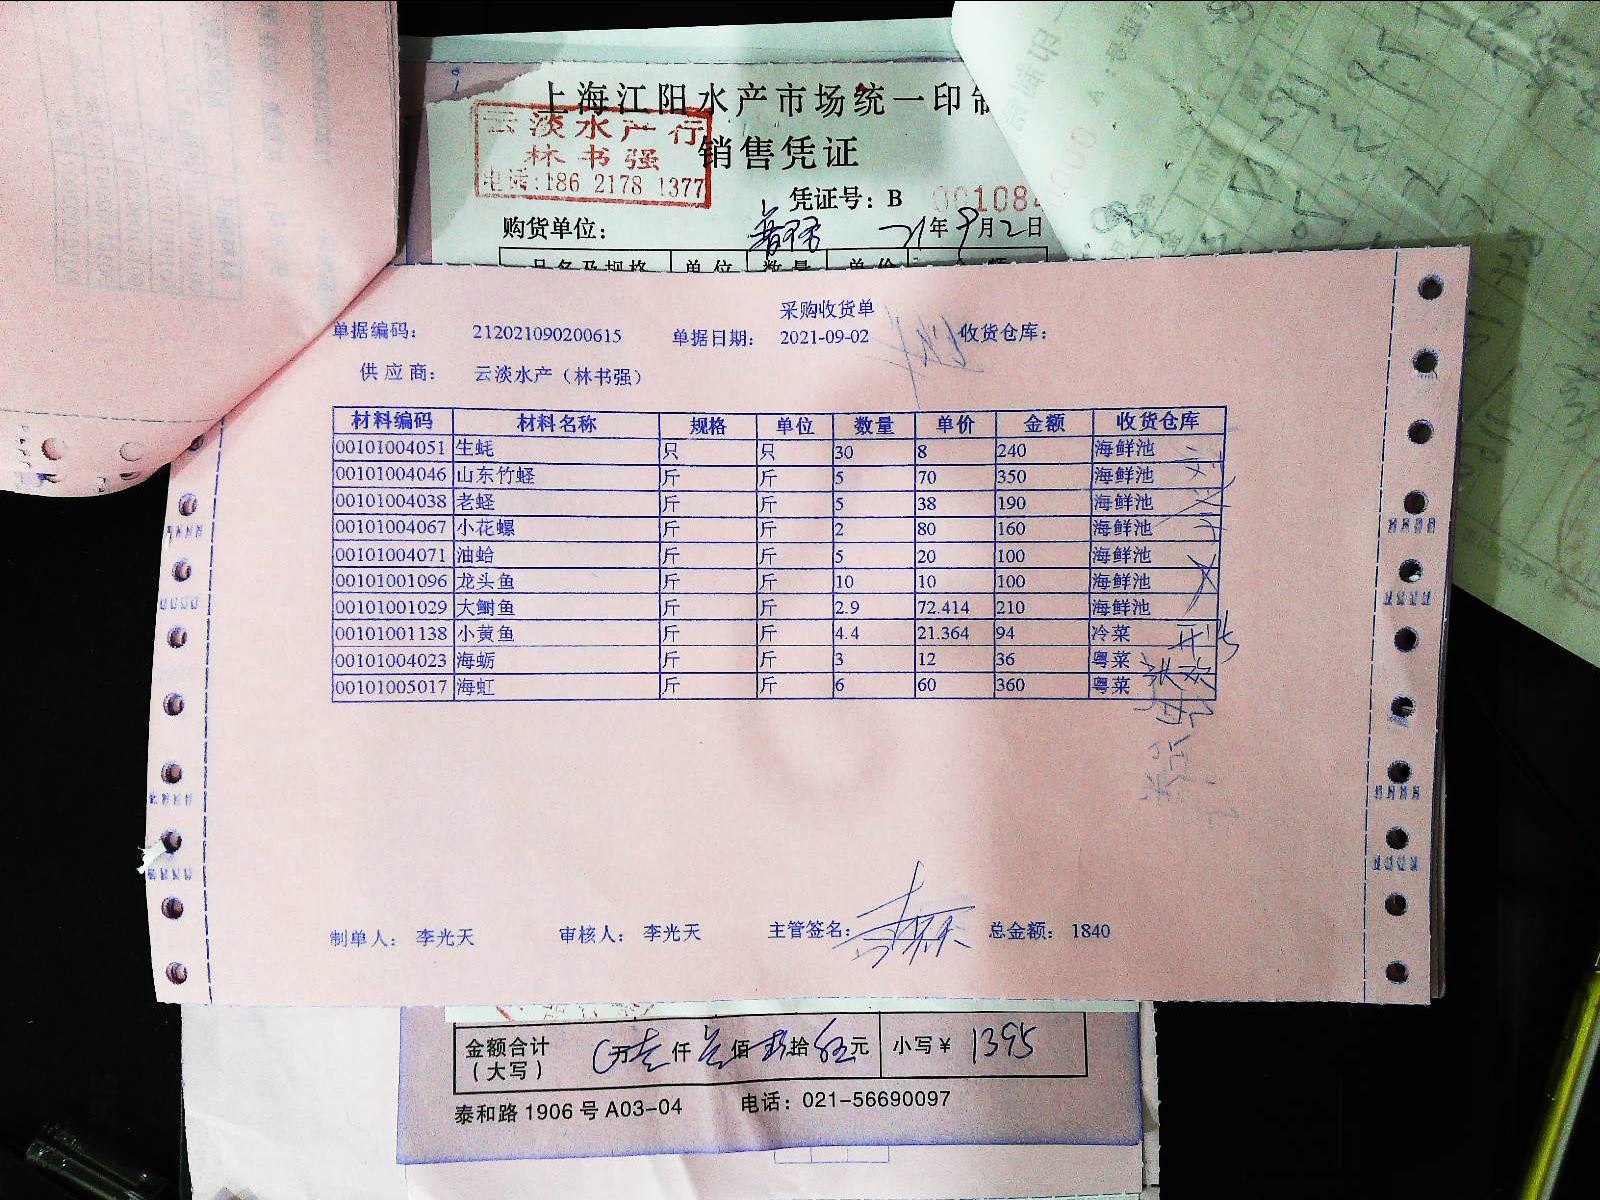 上海江阳水产市场统一印制
销售凭证
云淡水产行
林书强
电话:186 2178 1377
凭证号: B 001084
购货单位: 21年9月2日
品名及规格 单位 数量 单价 金额
采购收货单
单据编码: 212021090200615 单据日期: 2021-09-02 收货仓库:
供应商: 云淡水产（林书强）
材料编码 材料名称 规格 单位 数量 单价 金额 收货仓库
00101004051 生蚝 只 只 30 8 240 海鲜池
00101004046 山东竹蛏 斤 斤 5 70 350 海鲜池
00101004038 老蛏 斤 斤 5 38 190 海鲜池
00101004067 小花螺 斤 斤 2 80 160 海鲜池
00101004071 油蛤 斤 斤 5 20 100 海鲜池
00101001096 龙头鱼 斤 斤 10 10 100 海鲜池
00101001029 大鲥鱼 斤 斤 2.9 72.414 210 海鲜池
00101001138 小黄鱼 斤 斤 4.4 21.364 94 冷菜
00101004023 海蛎 斤 斤 3 12 36 粤菜
00101005017 海虹 斤 斤 6 60 360 粤菜
制单人: 李光天 审核人: 李光天 主管签名: 总金额: 1840
金额合计（大写） 万 仟 佰 拾 元 小写¥ 1395
泰和路1906号A03-04 电话: 021-56690097